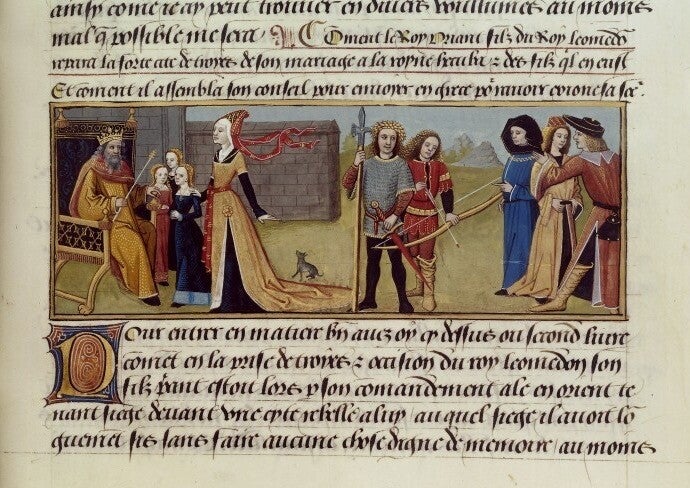 ainsy come ie ay peut trouver en divers voillumes au moins
mal q̃ possible me sera. Coment le Roy Priant filz du Roy leomedõ
repara la forte cite de troyes de son mariage a la royne hecuba & des filz ql en eust
Et coment il assembla son conseil pour envoyer en grece po² ravoir exionesa se².
Pour entrer en matiere bñ avez oy cy dessus ou second livre
comẽt en la prise de troyes & occision du roy leomedon son
filz priant estoit lors p son comandement ale en orient te
nant siege devant vne cyte rebelle a luy / auquel siege il avoit lõ
guemẽt sis sans faire aucune chose digne de memoire / au moins